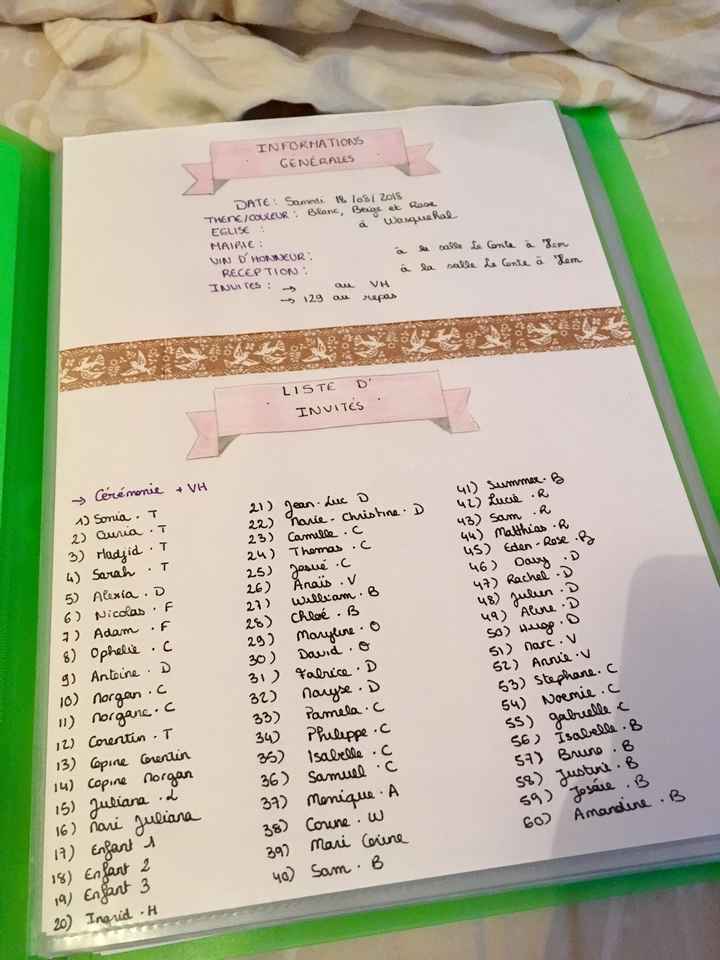 INFORMATIONS
GENÉRALES
DATE : Samedi 18/08/2018
THEME/COULEUR : Blanc, Beige et Rose
EGLISE : à Wasquehal
MAIRIE :
VIN D'HONNEUR : à la salle Le Conte à Hem
RECEPTION : à la salle Le Conte à Hem
INVITES : → au VH
→ 129 au repas
LISTE D'
INVITÉS
→ Cérémonie + VH
1) Sonia . T
2) Auria . T
3) Hadjid . T
4) Sarah . T
5) Alexia . D
6) Nicolas . F
7) Adam . F
8) Ophélie . C
9) Antoine . D
10) Morgan . C
11) Morgane . C
12) Corentin . T
13) Copine Corentin
14) Copine Morgan
15) Juliana . L
16) Mari Juliana
17) Enfant 1
18) Enfant 2
19) Enfant 3
20) Ingrid . H
21) Jean . Luc D
22) Marie - Christine . D
23) Camille . C
24) Thomas . C
25) Josué . C
26) Anaïs . V
27) William . B
28) Chloé . B
29) Maryline . O
30) David . O
31) Fabrice . D
32) Maryse . D
33) Pamela . C
34) Philippe . C
35) Isabelle . C
36) Samuel . C
37) Monique . A
38) Corine . W
39) Mari Corine
40) Sam . B
41) Summer . B
42) Lucie . R
43) Sam . R
44) Matthias . R
45) Eden - Rose . B
46) Davy . D
47) Rachel . D
48) Julien . D
49) Aline . D
50) Hugo . D
51) Marc . V
52) Annie . V
53) Stephane . C
54) Noemie . C
55) Gabrielle C
56) Isabelle . B
57) Bruno . B
58) Justine . B
59) Josaïe . B
60) Amandine . B